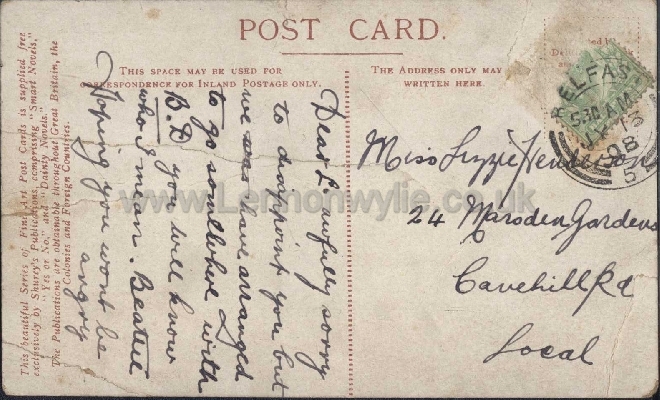 POST CARD.
THIS SPACE MAY BE USED FOR
CORRESPONDENCE FOR INLAND POSTAGE ONLY.
THE ADDRESS ONLY MAY
WRITTEN HERE.
This beautiful Series of Fine Art Post Cards is supplied free
exclusively by Shurey's Publications, comprising "Smart Novels,"
"Yes or No," and "Dainty Novels."
The Publications are obtainable throughout Great Britain, the
Colonies and Foreign Countries.
Dear L. awfully sorry
to disapoint you but
we was have arranged
to go with
B.D you will know
who I mean.
Hoping you wont be
angry
BELFAST
5 30 AM
08
5
Miss Lizzie Henderson
24 Marsden Gardens
Cavehill Rd
Local
www.Lennonwylie.co.uk